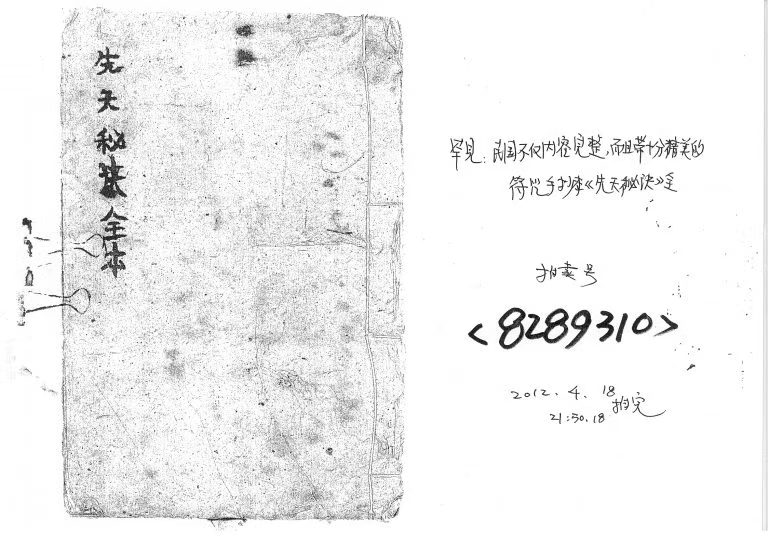 先天秘诀全本
罕见:民国不仅内容完整,而且带十分精美的
符咒手抄本《先天秘诀》全
拍卖号
<8289310>
2012.4.18
21:50.18 拍完